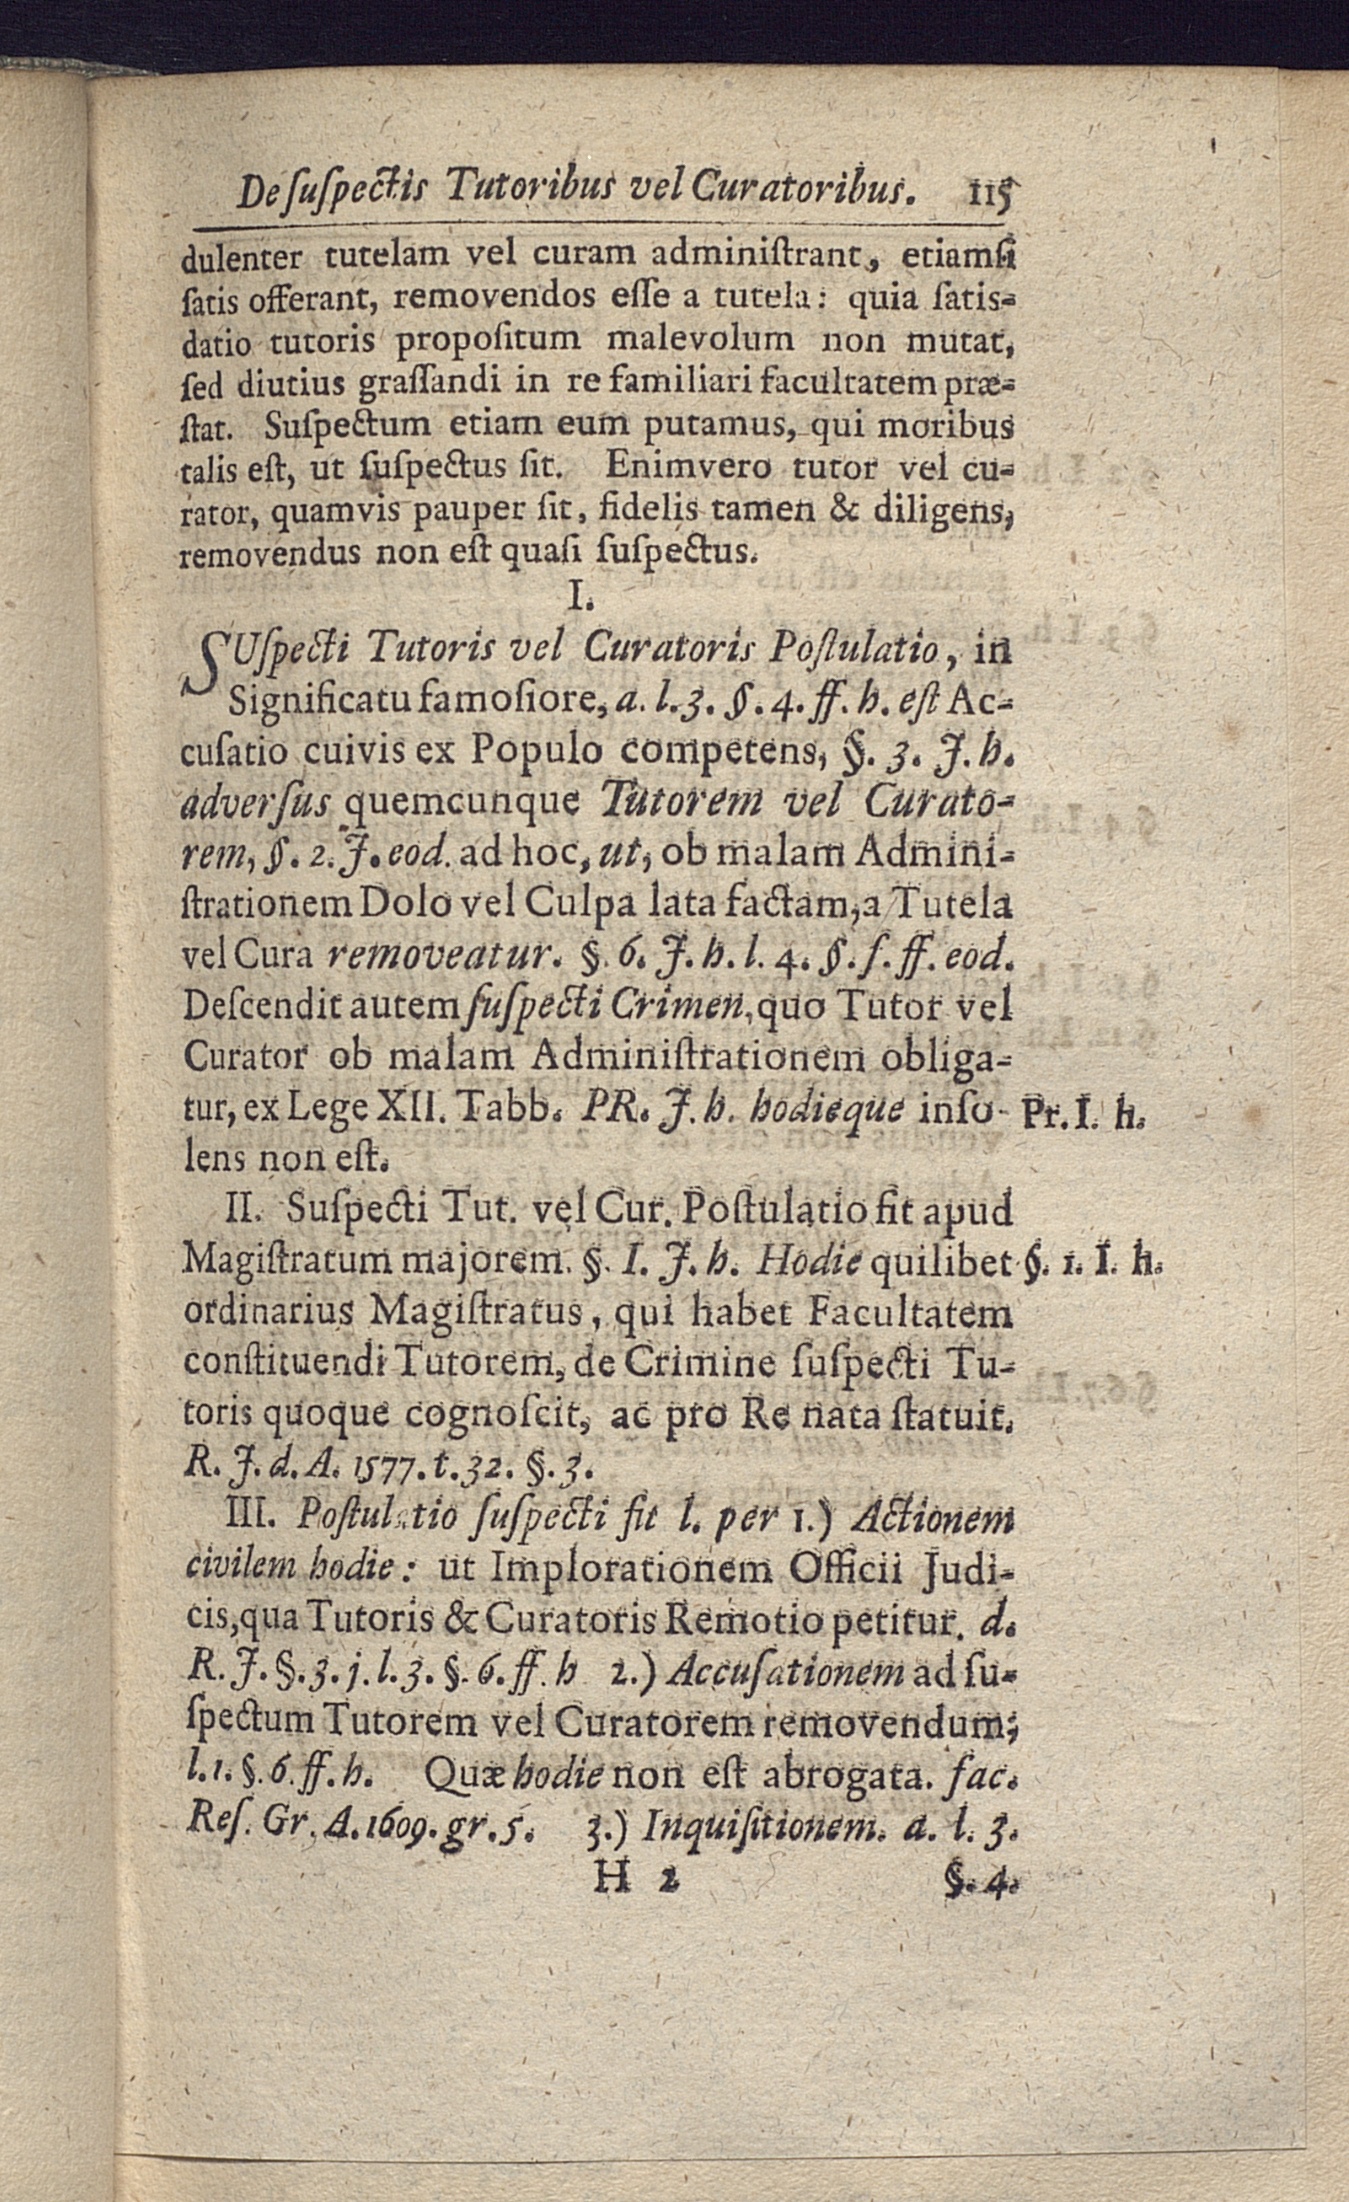 De ſuſpectis Tutoribus vel Curatoribus. 115
dulenter tutelam vel curam adminiſtrant, etiamſi
ſatis offerant, removendos eſſe a tutela: quia ſatis-
datio tutoris propoſitum malevolum non mutat,
ſed diutius graſſandi in re familiari facultatem præ-
ſtat. Suſpectum etiam eum putamus, qui moribus
talis eſt, ut ſuſpectus ſit. Enimvero tutor vel cu-
rator, quamvis pauper ſit, fidelis tamen & diligens,
removendus non eſt quaſi ſuſpectus.
I.
SUſpecti Tutoris vel Curatoris Poſtulatio, in
Significatu famoſiore, a. l. 3. §. 4. ff. h. eſt Ac-
cuſatio cuivis ex Populo competens, §. 3. J. h.
adverſus quemcunque Tutorem vel Curato-
rem, §. 2. J. eod. ad hoc, ut, ob malam Admini-
ſtrationem Dolo vel Culpa lata factam, a Tutela
vel Cura removeatur. §. 6. J. h. l. 4. §. ſ. ff. eod.
Deſcendit autem ſuſpecti Crimen, quo Tutor vel
Curator ob malam Adminiſtrationem obliga-
tur, ex Lege XII. Tabb. PR. J. h. hodieque inſo- Pr. I. h.
lens non eſt.
II. Suſpecti Tut. vel Cur. Poſtulatio fit apud
Magiſtratum majorem. §. I. J. h. Hodie quilibet §. 1. I. h.
ordinarius Magiſtratus, qui habet Facultatem
conſtituendi Tutorem, de Crimine ſuſpecti Tu-
toris quoque cognoſcit, ac pro Re nata ſtatuit.
R. J. d. A. 1577. t. 32. §. 3.
III. Poſtulatio ſuſpecti fit l. per 1.) Actionem
civilem hodie: ut Implorationem Officii Judi-
cis, qua Tutoris & Curatoris Remotio petitur. d.
R. J. §. 3. j. l. 3. §. 6. ff. h 2.) Accuſationem ad ſu-
ſpectum Tutorem vel Curatorem removendum;
l. 1. §. 6. ff. h. Quæ hodie non eſt abrogata. ſac.
Reſ. Gr. A. 1609. gr. 5. 3.) Inquiſitionem. a. l. 3.
H 2 §. 4.